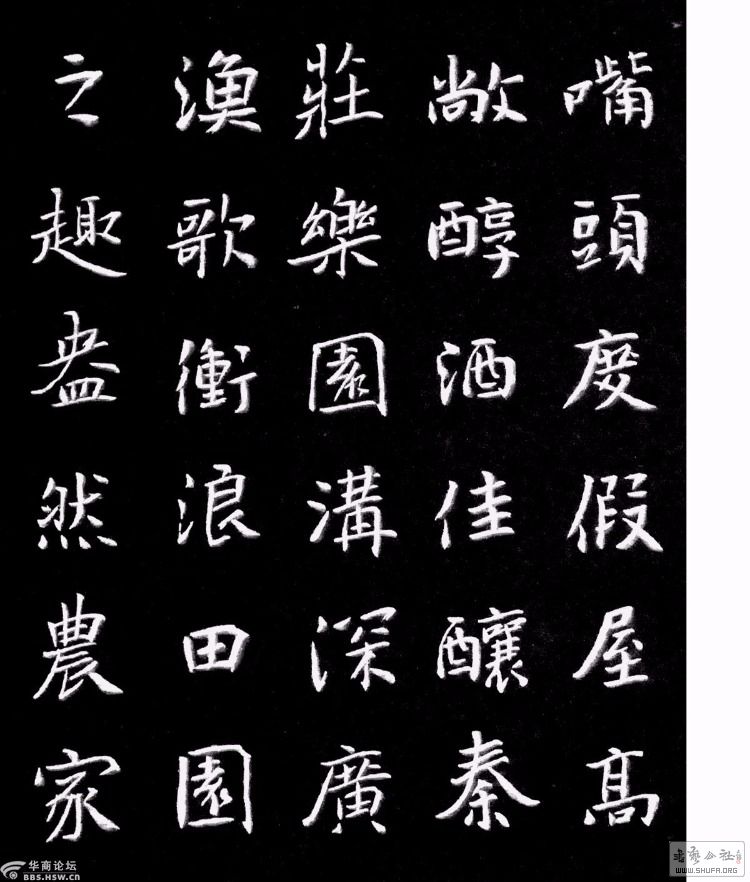 嘴頭度假屋高
敞醇酒佳釀秦
莊樂園溝深廣
漁歌衝浪田園
之趣盎然農家
华商论坛
BBS.HSW.CN
WWW.SHUFA.ORG